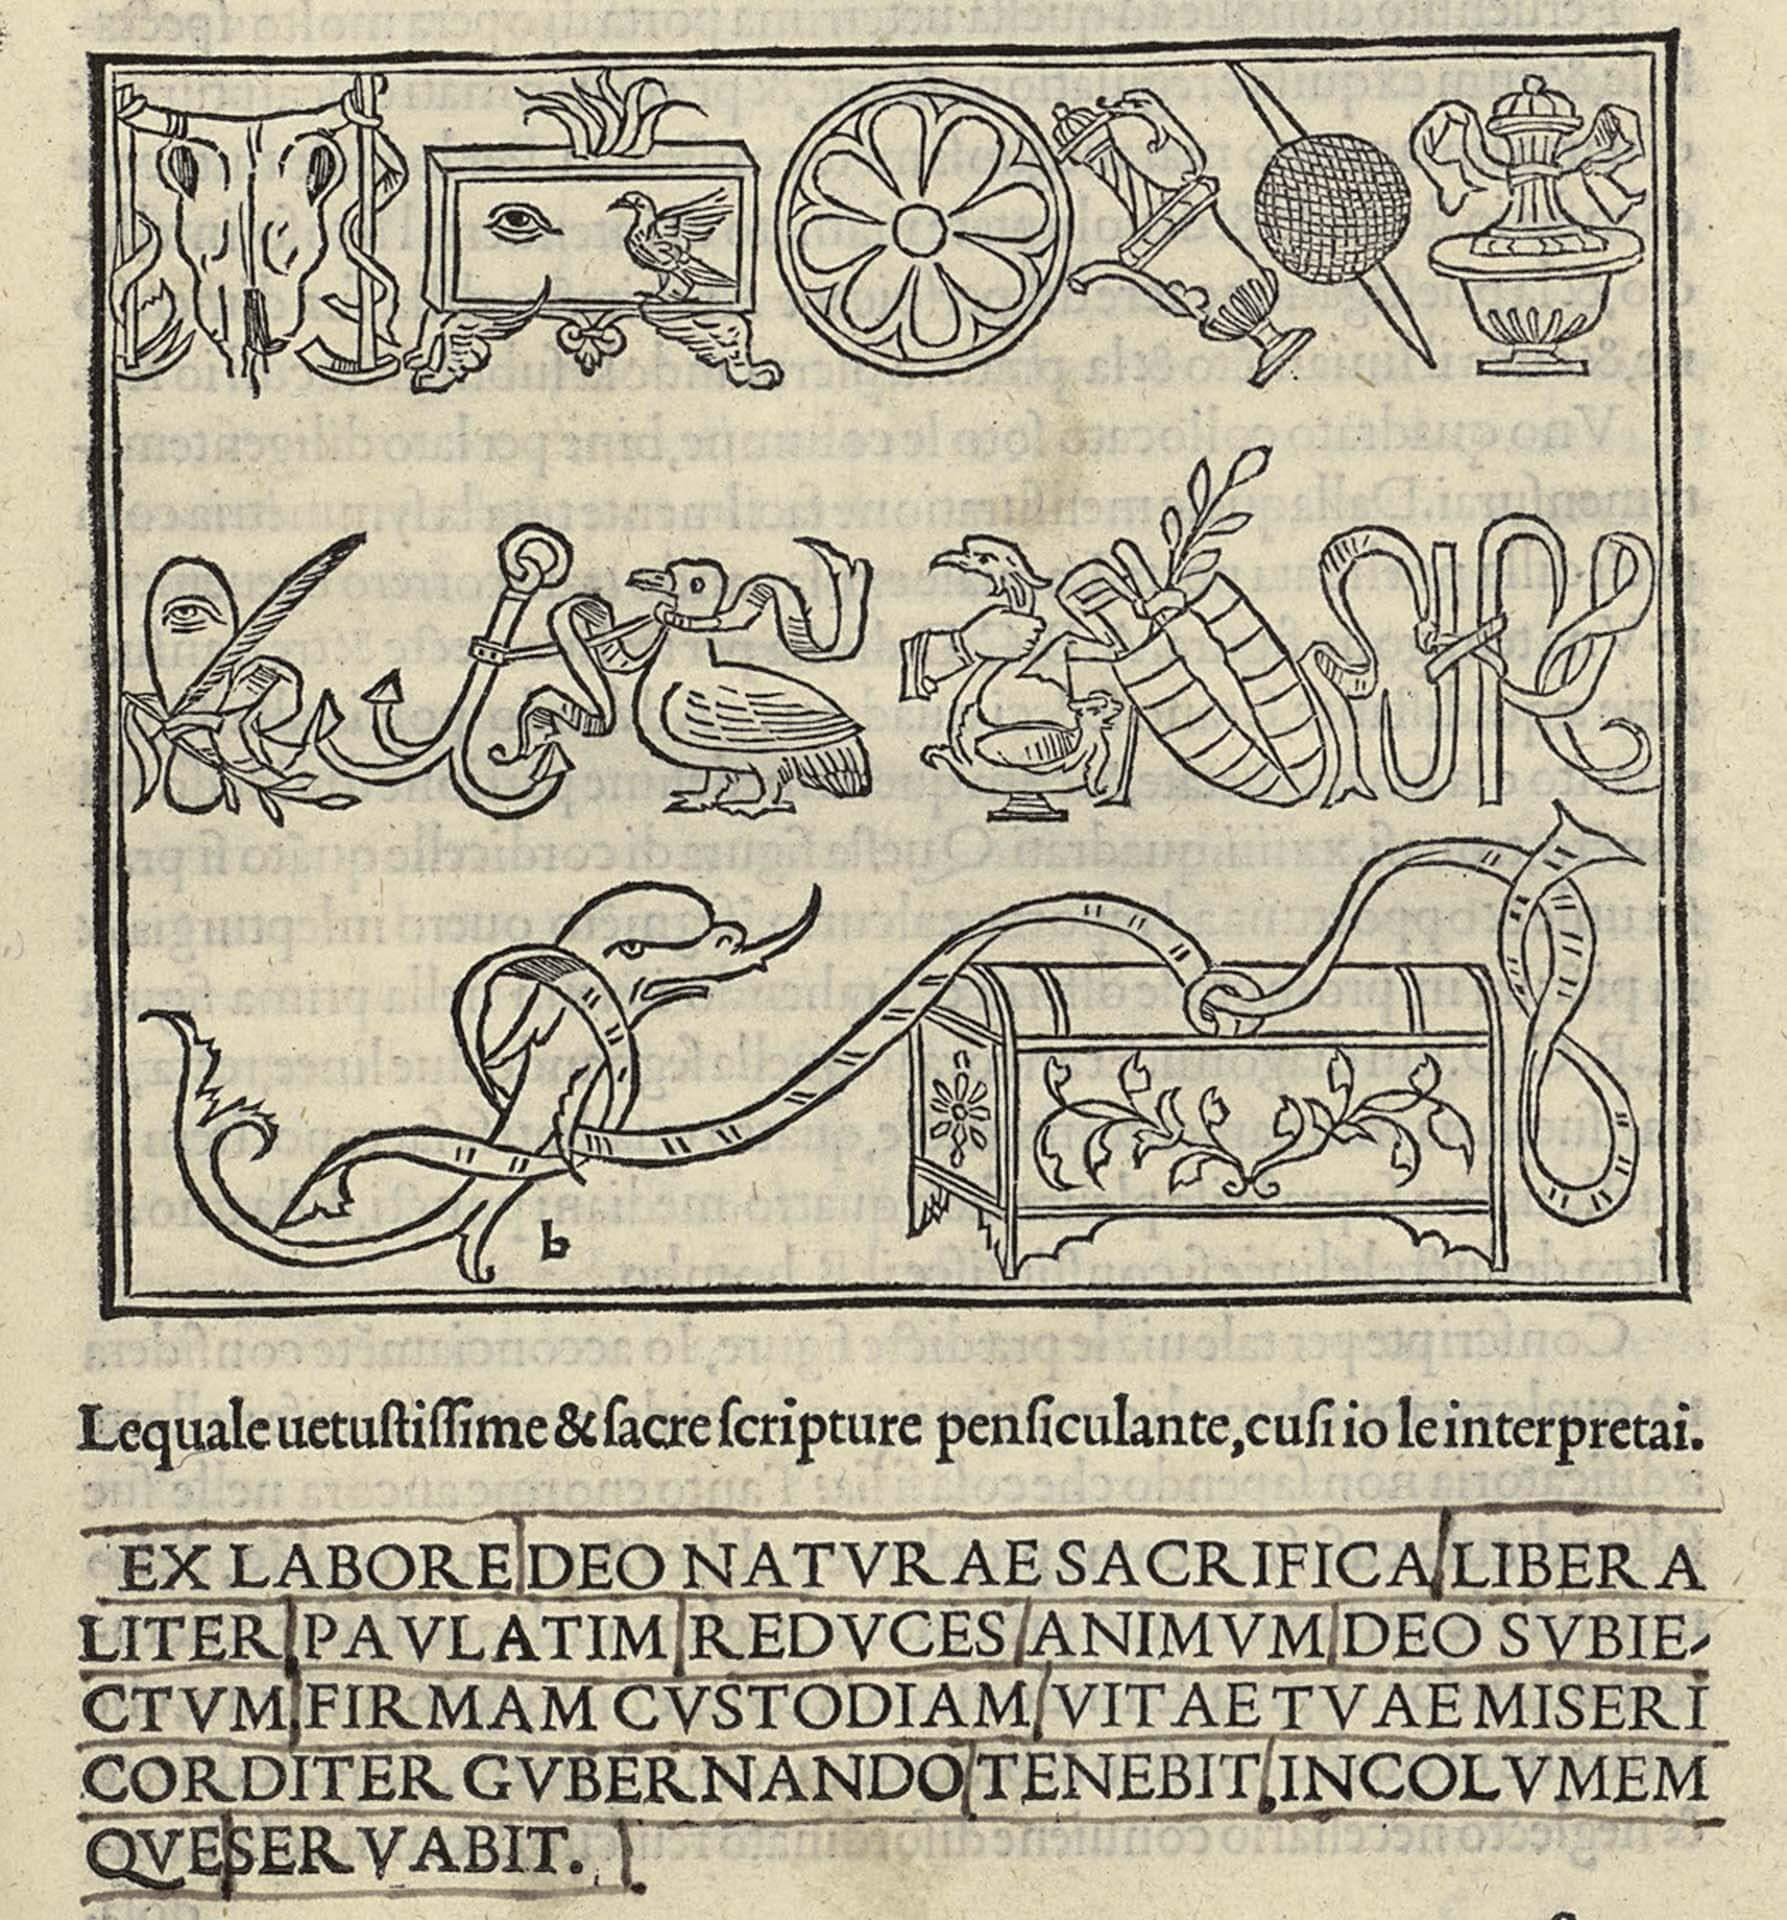 b
Lequale uetustissime & sacre scripture pensiculante, cusi io le interpretai.
EX LABORE DEO NATVRAE SACRIFICA LIBERA
LITER PAVLATIM REDVCES ANIMVM DEO SVBIE-
CTVM FIRMAM CVSTODIAM VITAE TVAE MISERI
CORDITER GVBERNANDO TENEBIT, INCOLVMEM
QVE SERVABIT.